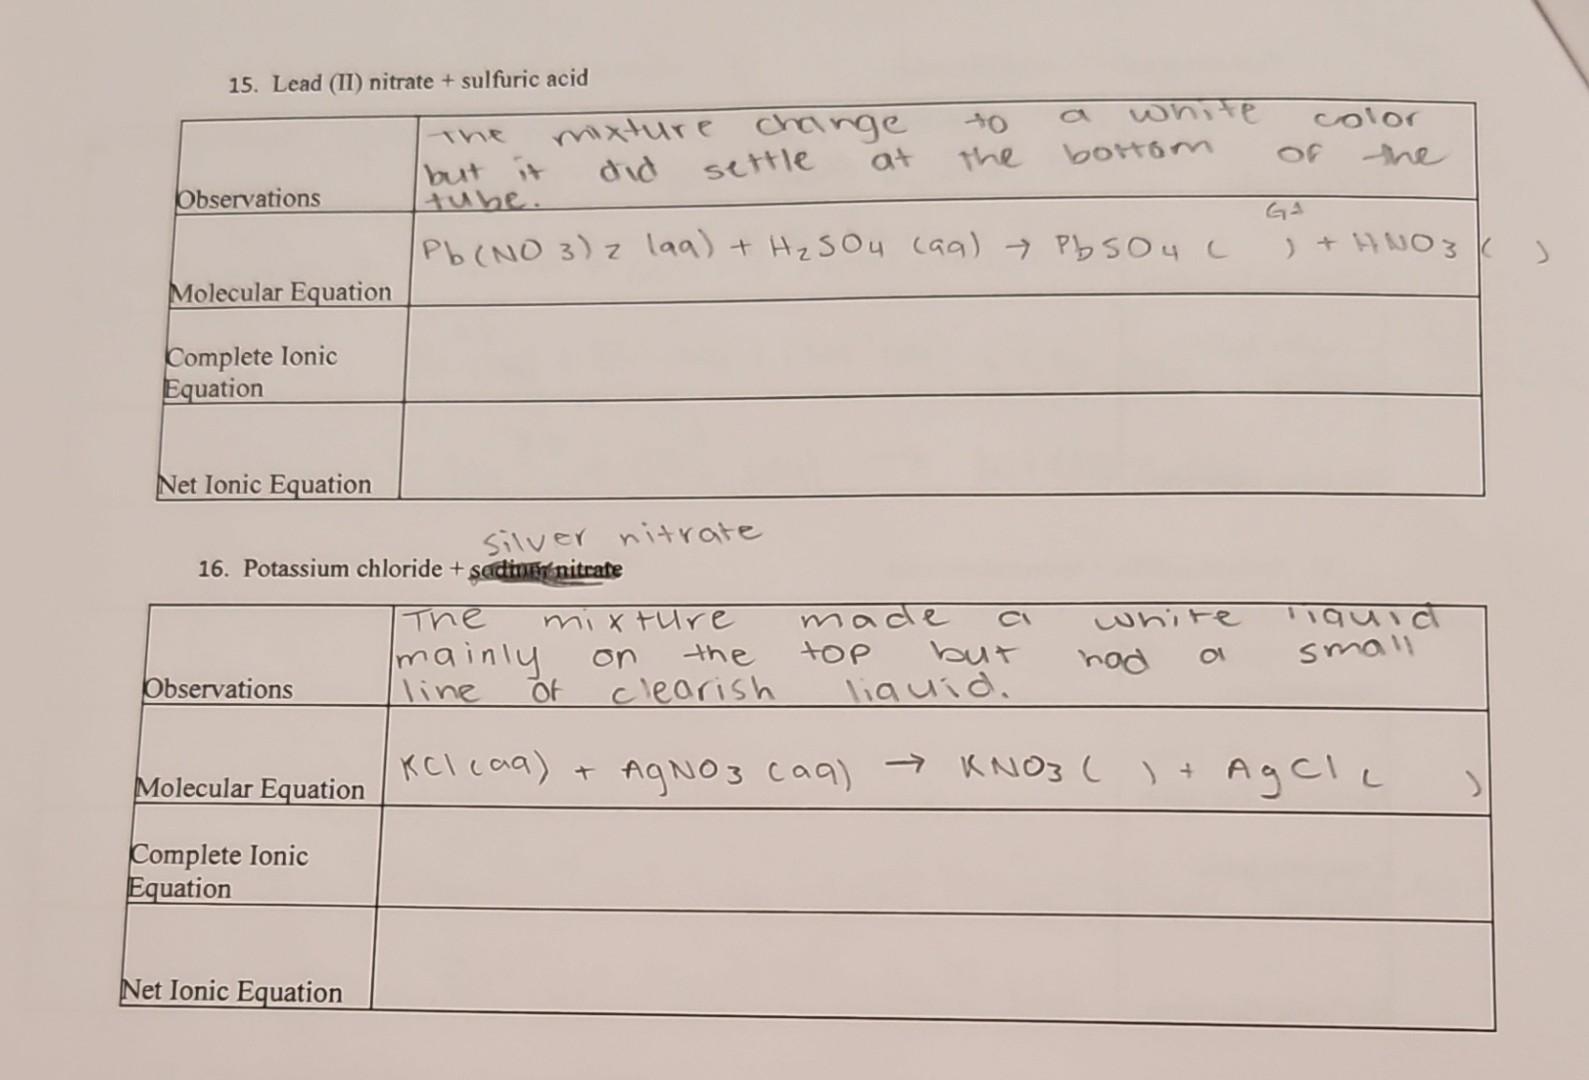 15. Lead (II) nitrate + sulfuric acid
The mixture change to a white color
but it did settle at the bottom of the
Observations tube.
Molecular Equation Pb(NO3)2 (aq) + H2SO4 (aq) → PbSO4 ( ) + HNO3 ( )
Complete Ionic
Equation
Net Ionic Equation
silver nitrate
16. Potassium chloride + sodium nitrate
The mixture made a white liquid
mainly on the top but had a small
Observations line of clearish liquid.
Molecular Equation KCl (aq) + AgNO3 (aq) → KNO3 ( ) + AgCl ( )
Complete Ionic
Equation
Net Ionic Equation